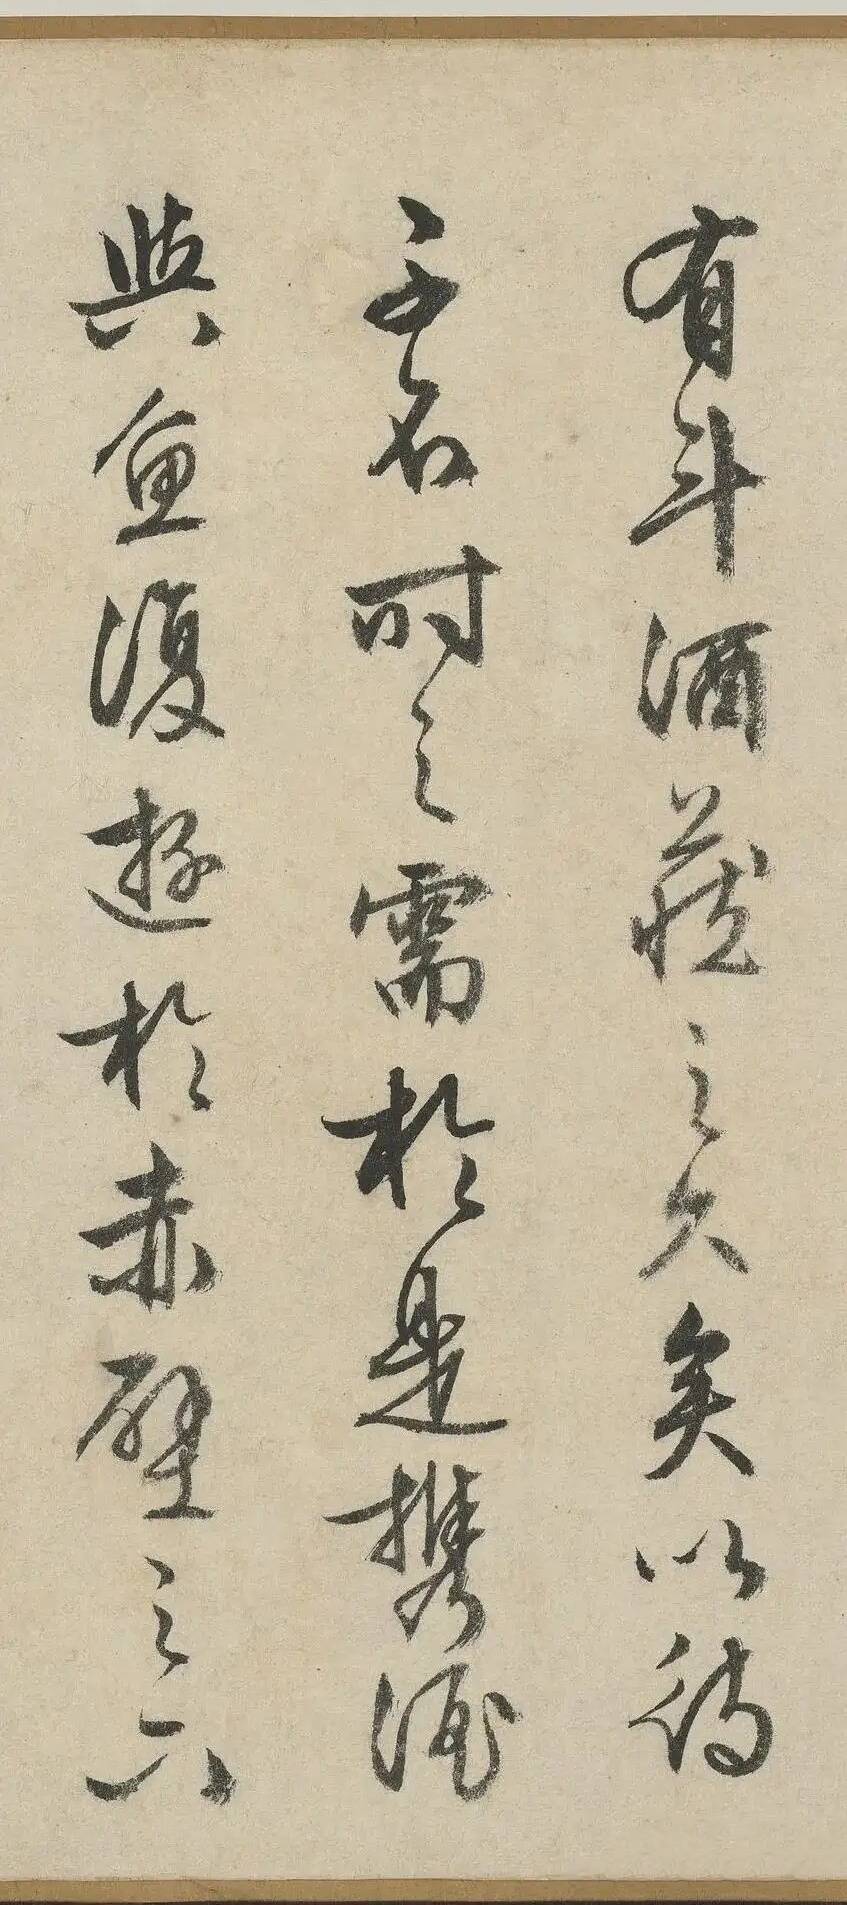 有斗酒藏之久矣以待
子不時之需於是攜酒
與魚復遊於赤壁之下